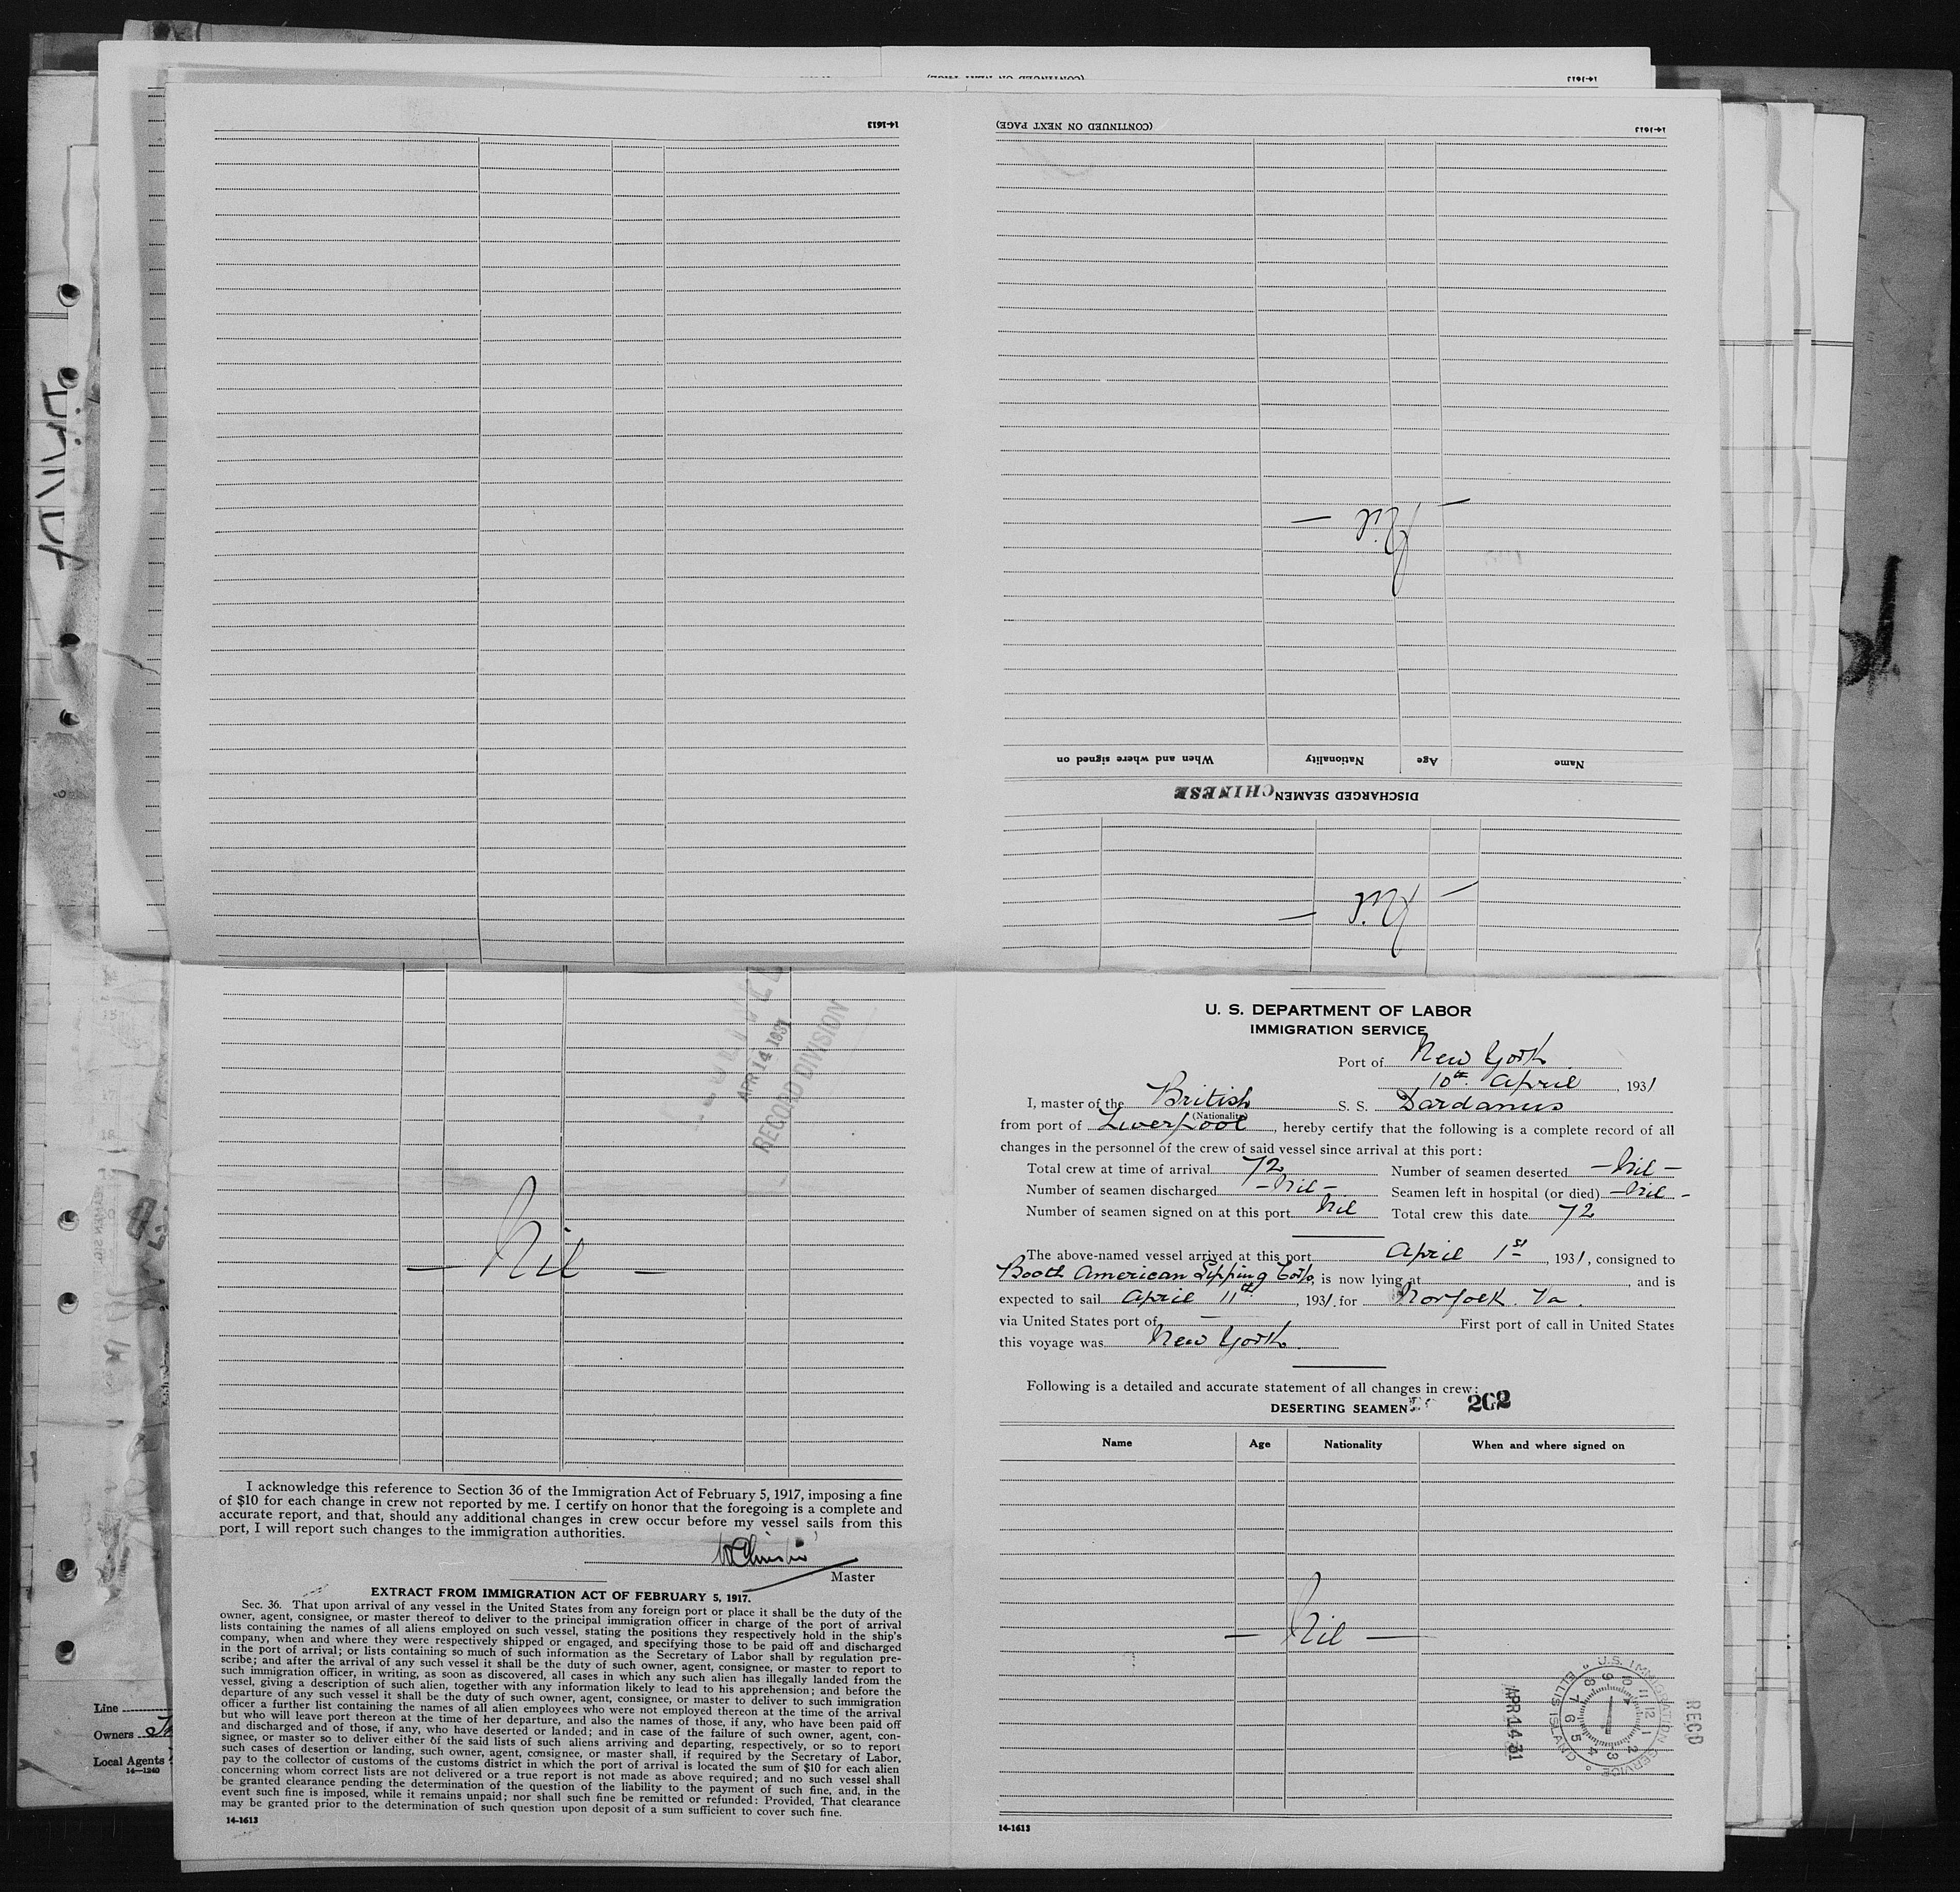 (CONTINUED ON NEXT PAGE)
14-1613
14-1613
(CONTINUED ON NEXT PAGE)
14-1613
— Nil —
Name Age Nationality When and where signed on
DISCHARGED SEAMEN CHINESE
— Nil —
APR 14 1931
RECORD DIVISION
— Nil —
I acknowledge this reference to Section 36 of the Immigration Act of February 5, 1917, imposing a fine
of $10 for each change in crew not reported by me. I certify on honor that the foregoing is a complete and
accurate report, and that, should any additional changes in crew occur before my vessel sails from this
port, I will report such changes to the immigration authorities.
Master
EXTRACT FROM IMMIGRATION ACT OF FEBRUARY 5, 1917.
Sec. 36. That upon arrival of any vessel in the United States from any foreign port or place it shall be the duty of the
owner, agent, consignee, or master thereof to deliver to the principal immigration officer in charge of the port of arrival
lists containing the names of all aliens employed on such vessel, stating the positions they respectively hold in the ship's
company, when and where they were respectively shipped or engaged, and specifying those to be paid off and discharged
in the port of arrival; or lists containing so much of such information as the Secretary of Labor shall by regulation pre-
scribe; and after the arrival of any such vessel it shall be the duty of such owner, agent, consignee, or master to report to
such immigration officer, in writing, as soon as discovered, all cases in which any such alien has illegally landed from the
vessel, giving a description of such alien, together with any information likely to lead to his apprehension; and before the
departure of any such vessel it shall be the duty of such owner, agent, consignee, or master to deliver to such immigration
officer a further list containing the names of all alien employees who were not employed thereon at the time of the arrival
but who will leave port thereon at the time of her departure, and also the names of those, if any, who have been paid off
and discharged and of those, if any, who have deserted or landed; and in case of the failure of such owner, agent, con-
signee, or master so to deliver either of the said lists of such aliens arriving and departing, respectively, or so to report
such cases of desertion or landing, such owner, agent, consignee, or master shall, if required by the Secretary of Labor,
pay to the collector of customs of the customs district in which the port of arrival is located the sum of $10 for each alien
concerning whom correct lists are not delivered or a true report is not made as above required; and no such vessel shall
be granted clearance pending the determination of the question of the liability to the payment of such fine, and, in the
event such fine is imposed, while it remains unpaid; nor shall such fine be remitted or refunded: Provided, That clearance
may be granted prior to the determination of such question upon deposit of a sum sufficient to cover such fine.
14-1613
U. S. DEPARTMENT OF LABOR
IMMIGRATION SERVICE
Port of New York
10th April, 1931
I, master of the British S. S. Dardanus
(Nationality)
from port of Liverpool, hereby certify that the following is a complete record of all
changes in the personnel of the crew of said vessel since arrival at this port:
Total crew at time of arrival 72 Number of seamen deserted — Nil —
Number of seamen discharged — Nil — Seamen left in hospital (or died) — Nil —
Number of seamen signed on at this port Nil Total crew this date 72
The above-named vessel arrived at this port April 1st, 1931, consigned to
Booth American Sipping Corp, is now lying at , and is
expected to sail April 11th, 1931. for Norfolk. Va.
via United States port of — First port of call in United States
this voyage was New York.
Following is a detailed and accurate statement of all changes in crew:
DESERTING SEAMEN 202
Name Age Nationality When and where signed on
— Nil —
APR 14 31
U.S. IMMIGRATION SERVICE ELLIS ISLAND
RECD
14-1613
Line
Owners
Local Agents
14—1240